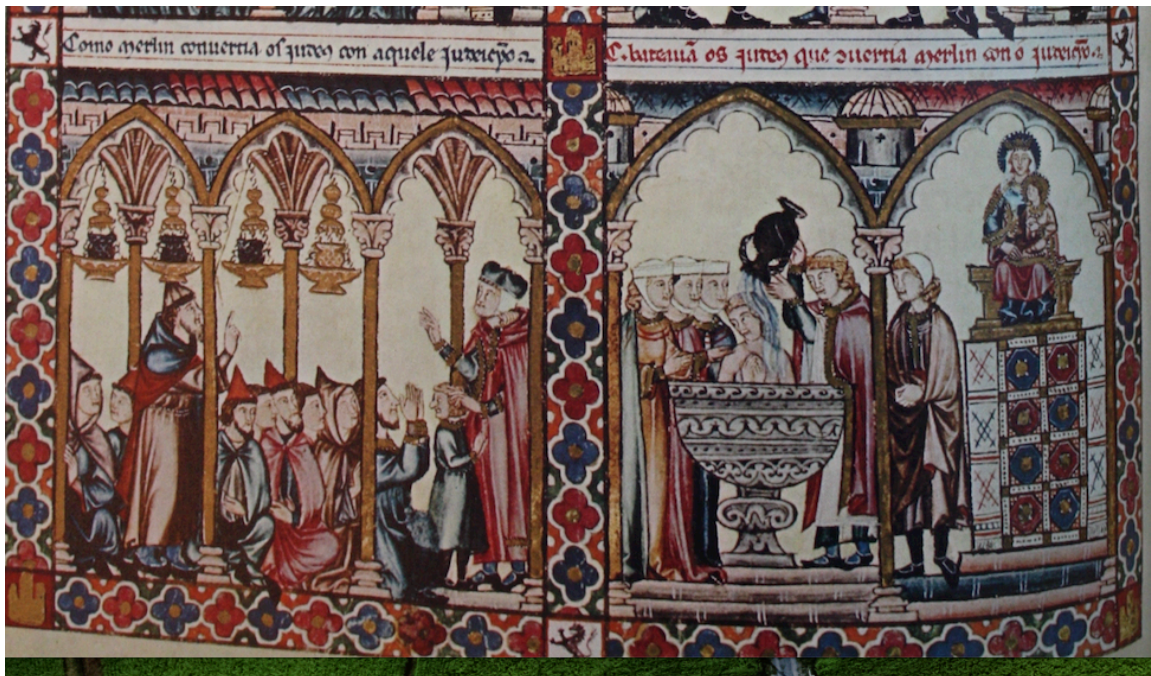 Como merlin convertia os judeus con aquele judeucỹo
C. bateiavã os judeus que 2vertia merlin con o judeucỹo